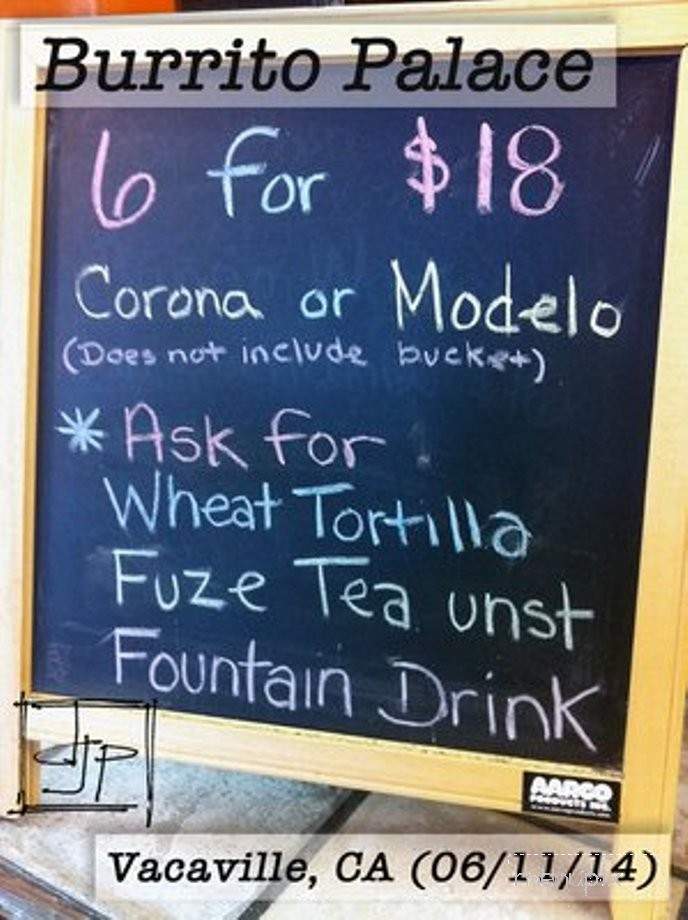 Burrito Palace
6 for $18
Corona or Modelo
(Does not include bucket)
* Ask for
Wheat Tortilla
Fuze Tea unst
Fountain Drink
JJP
AARCO
PRODUCTS INC.
Vacaville, CA (06/11/14)